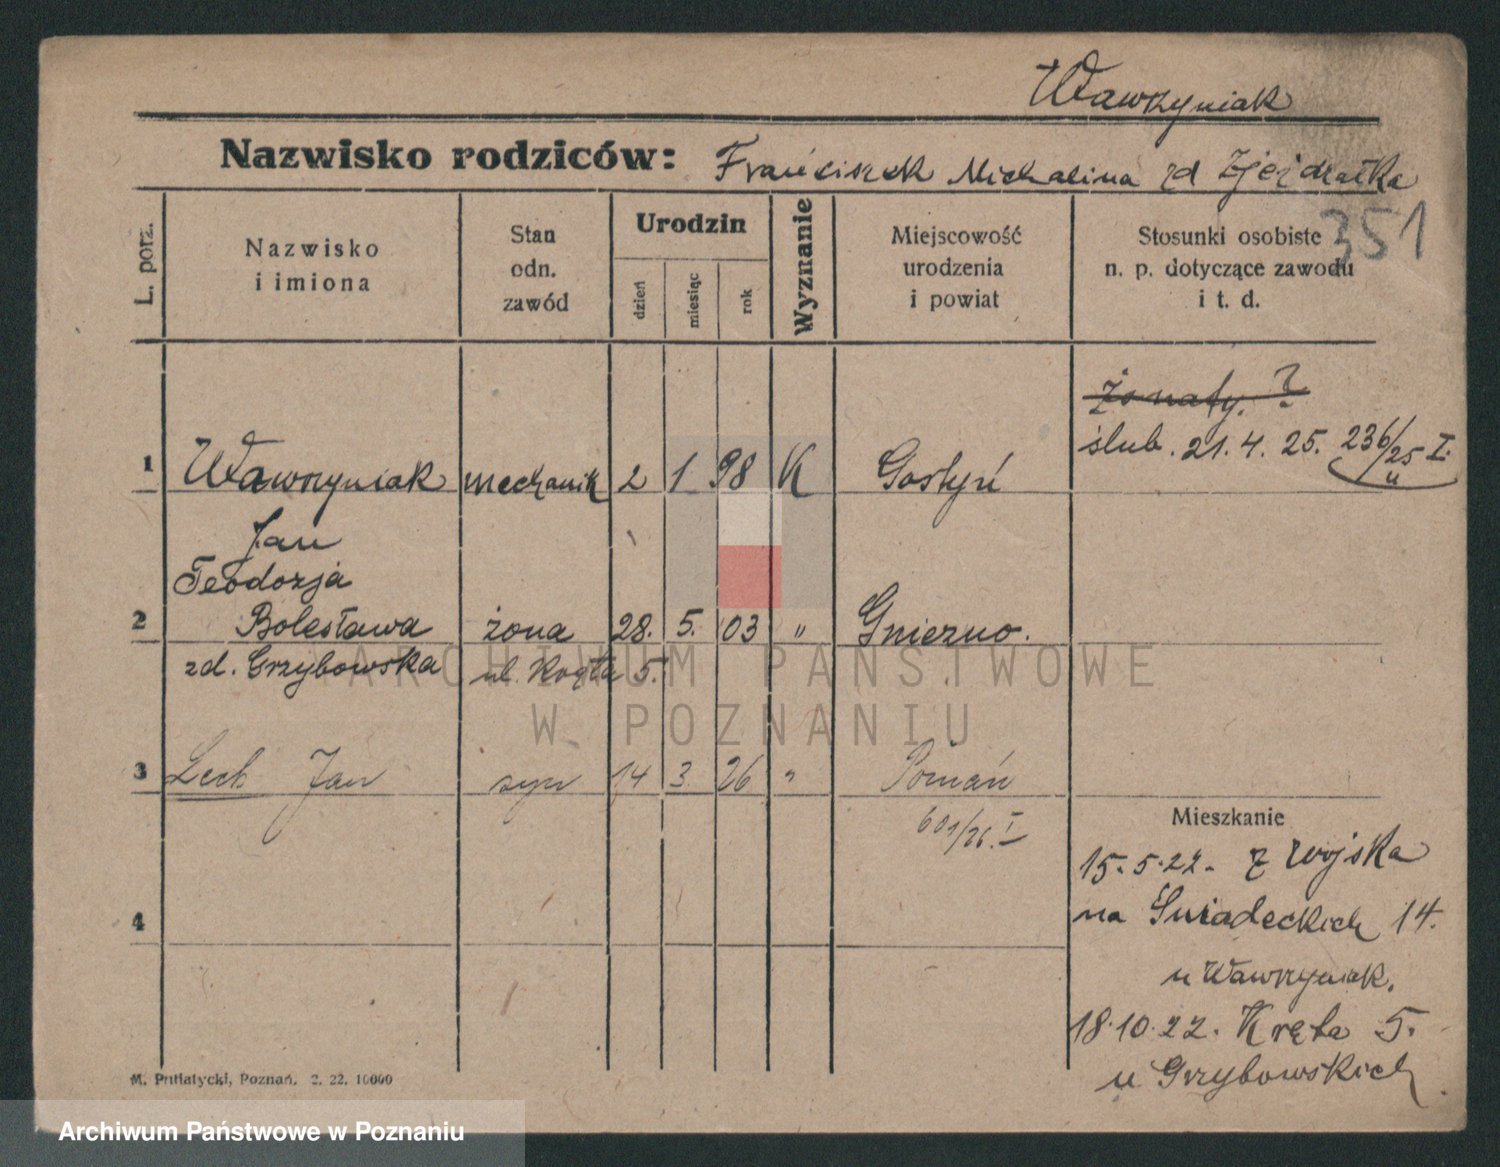 Wawrzyniak
Nazwisko rodziców: Franciszek Michalina zd Zjeżdrałka
351
L. porz.
Nazwisko
i imiona
Stan
odn.
zawód
Urodzin
dzień
miesiąc
rok
Wyznanie
Miejscowość
urodzenia
i powiat
Stosunki osobiste
n. p. dotyczące zawodu
i t. d.
żonaty. ?
ślub. 21. 4. 25. 236/25 I.
u
1 Wawrzyniak mechanik 2 1 98 K Gostyń
Jan
Teodozja
2 Bolesława żona 28. 5. 03 " Gniezno.
zd. Grzybowska ul. Kręta 5.
3 Lech Jan syn 14 3 26 " Poznań
601/26. I
4
Mieszkanie
15. 5. 22. z wojska
na Śniadeckich 14.
u Wawrzyniak.
18. 10. 22. Kręta 5.
u Grzybowskich
M. Putiatycki, Poznań. 2. 22. 10000
ARCHIWUM PAŃSTWOWE
W POZNANIU
Archiwum Państwowe w Poznaniu